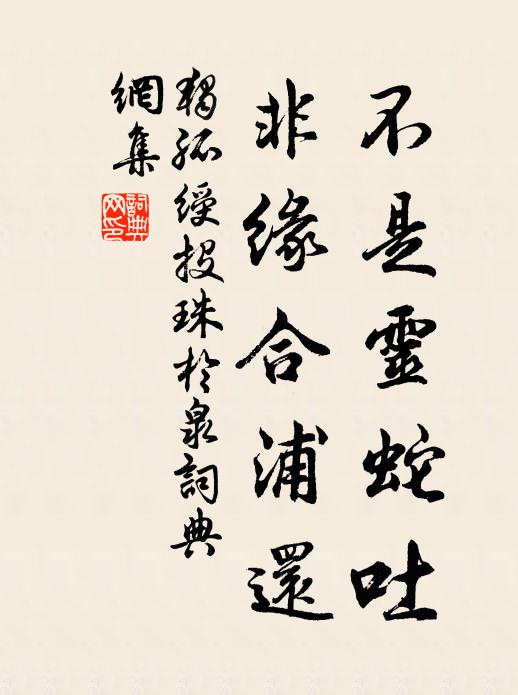 不是靈蛇吐
非緣合浦還
獨孤綬投珠於泉詞典
網集
詞典
网印